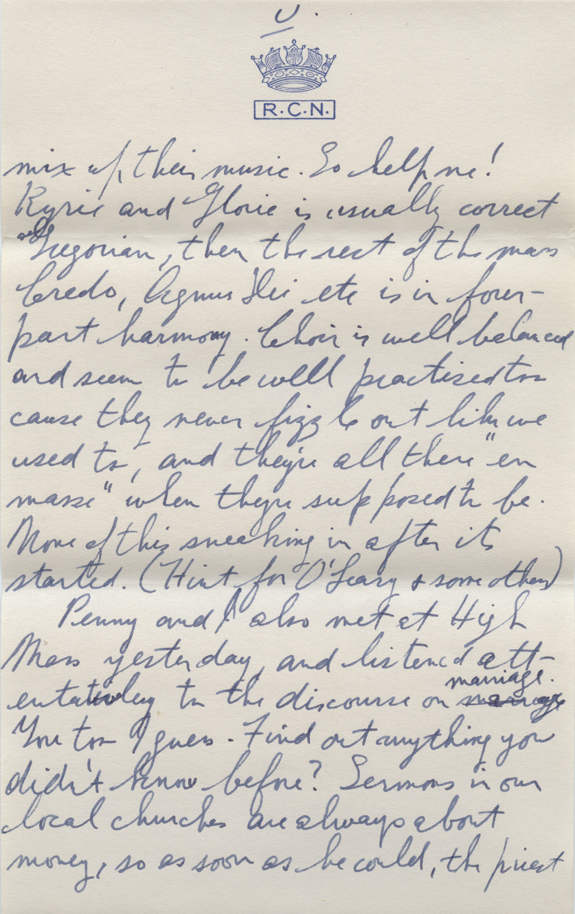 U.
R.C.N.
mix up their music. So help me!
Kyrie and Glorie is usually correct
old
Gregorian, then the rest of the mass
Credo, Agnus Dei etc is in four-
part harmony. Choir is well balanced
and seem to be well practised too
cause they never fizzle out like we
used to, and they're all there "en
masse" when theyre supposed to be.
None of this sneaking in after its
started. (Hint for O'Leary & some others)
Penny and I also met at High
Mass yesterday, and listened att-
marriage.
entatively to the discourse on marriage
You too I guess. Find out anything you
didn't know before? Sermons in our
local churches are always about
money, so as soon as he could, the priest